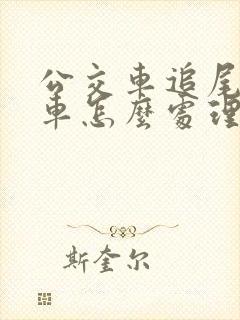 公交車追尾
車怎麼處理
斯奎尔